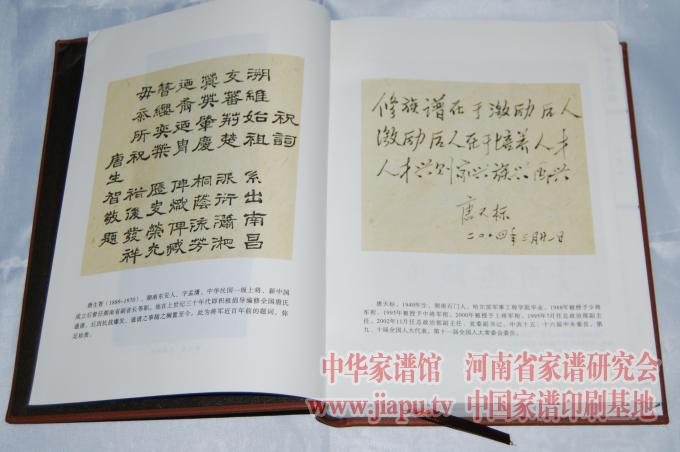 祝詞
溯維始祖 系出南昌
支蕃荊楚 派衍瀟湘
蓂英肇慶 桐蔭流芳
廼裔廼胄 俾熾俾臧
簪纓奕葉 歷史榮光
毋忝所祝 裕後發祥
唐生智敬題
唐生智（1889-1970），湖南东安人，字孟潇，中华民国一级上将，新中国
成立后曾任湖南省副省长等职。他在上世纪三十年代即积极倡导编修全国唐氏
通谱，后因抗战爆发，通谱之事随之搁置至今。此为将军近百年前的题词，弥
足珍贵。
修族谱在于激励后人
激励后人在于培养人才
人才兴则家兴族兴国兴
唐天标
二〇〇四年三月廿一日
唐天标，1940年生，湖南石门人，哈尔滨军事工程学院毕业，1988年被授予少将
军衔，1995年被授予中将军衔，2000年被授予上将军衔。1995年7月任总政治部副主
任，2002年11月任总政治部副主任、党委副书记。中共十五、十六届中央委员，第
九、十届全国人大代表，第十一届全国人大常委会委员。
中华家谱馆 河南省家谱研究会
www.jiapu.tv 中国家谱印刷基地